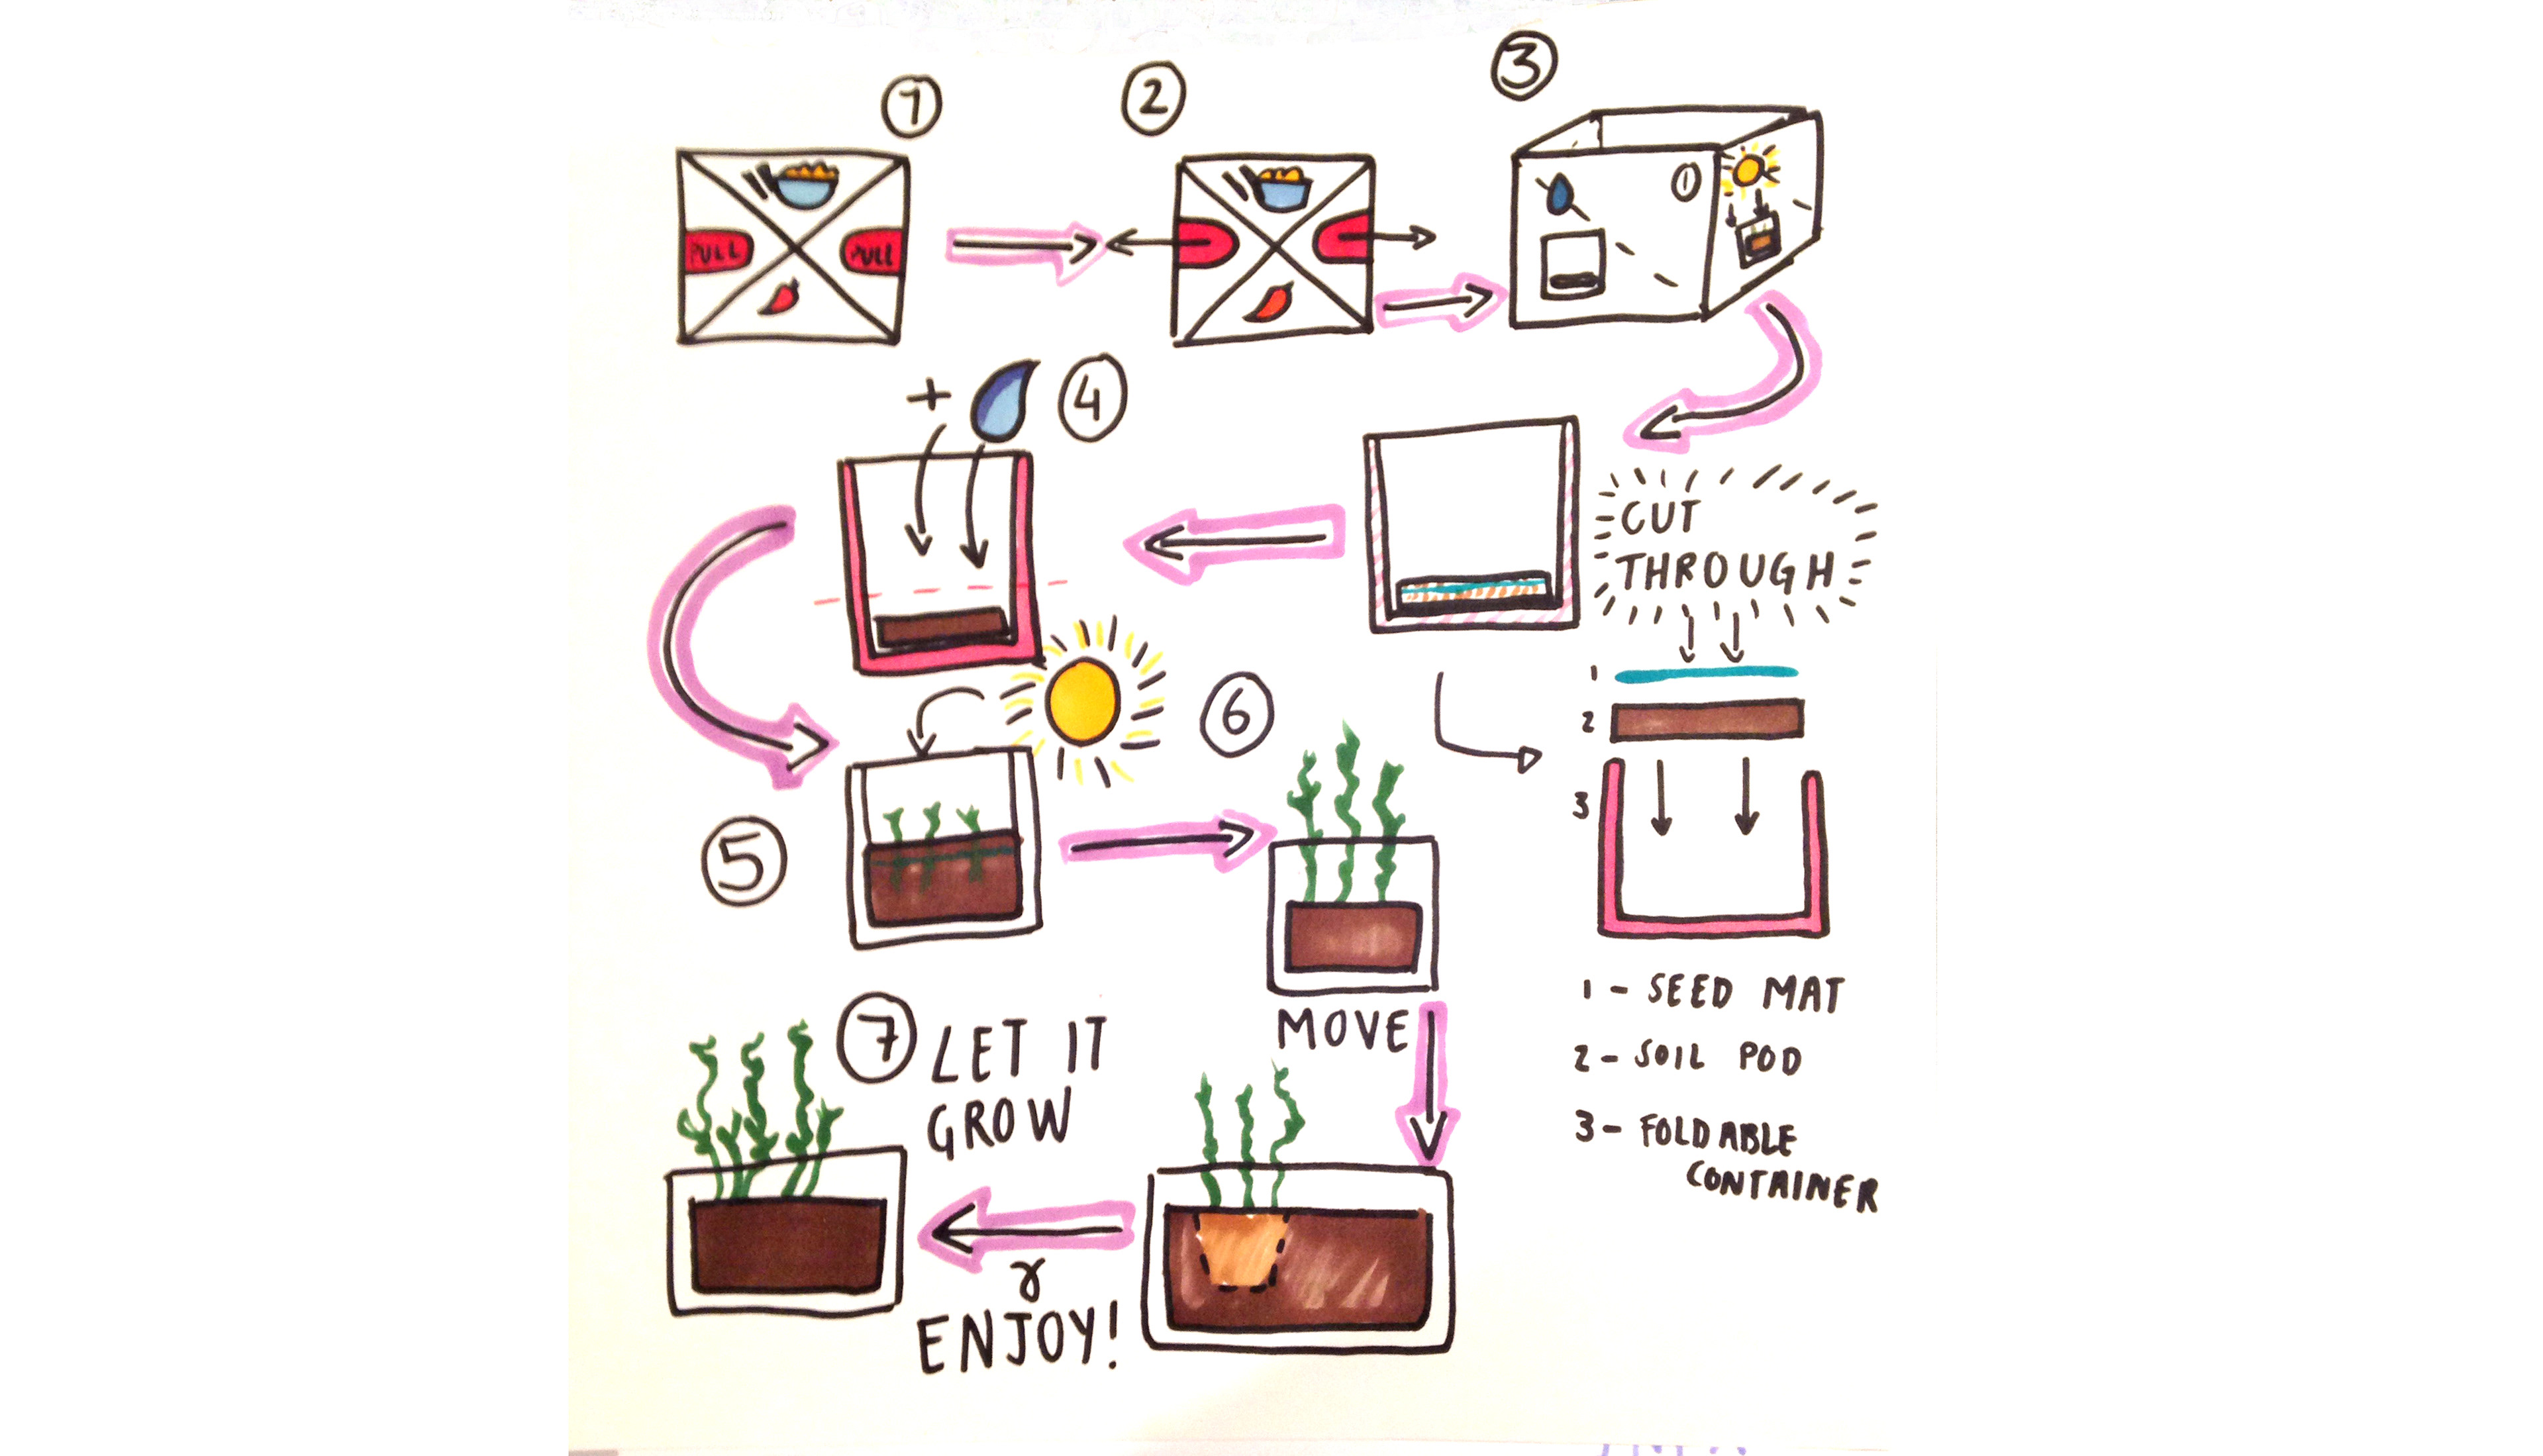 1
2
3
PULL
PULL
1
+
4
CUT
THROUGH
1
2
3
5
6
MOVE
1 - SEED MAT
2 - SOIL POD
3 - FOLDABLE
CONTAINER
7
LET IT
GROW
ENJOY!